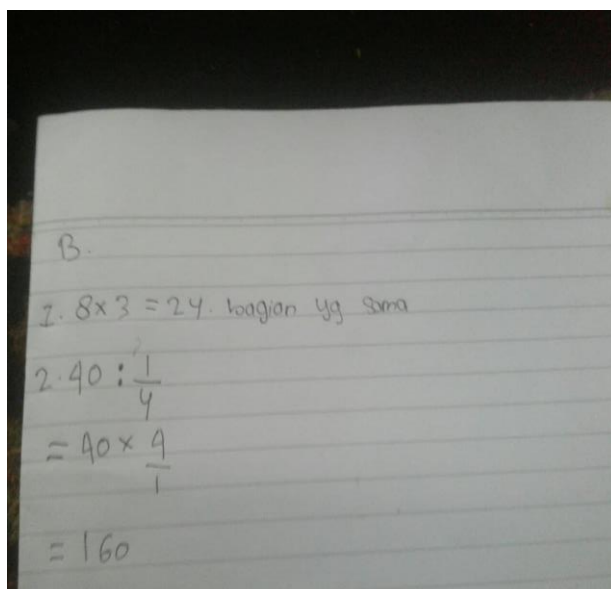 B.
1. 8 × 3 = 24. bagian yg sama
2. 40 : 1/4
= 40 × 4/1
= 160